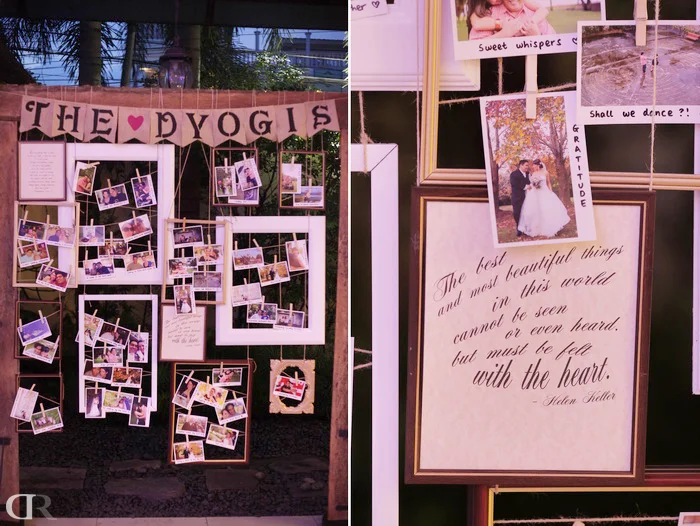 THE ♥ DYOGIS
DR
her ♡
Sweet whispers ♡
Shall we dance ?!
GRATITUDE
The best
and most beautiful things
in this world
cannot be seen
or even heard.
but must be felt
with the heart.
- Helen Keller